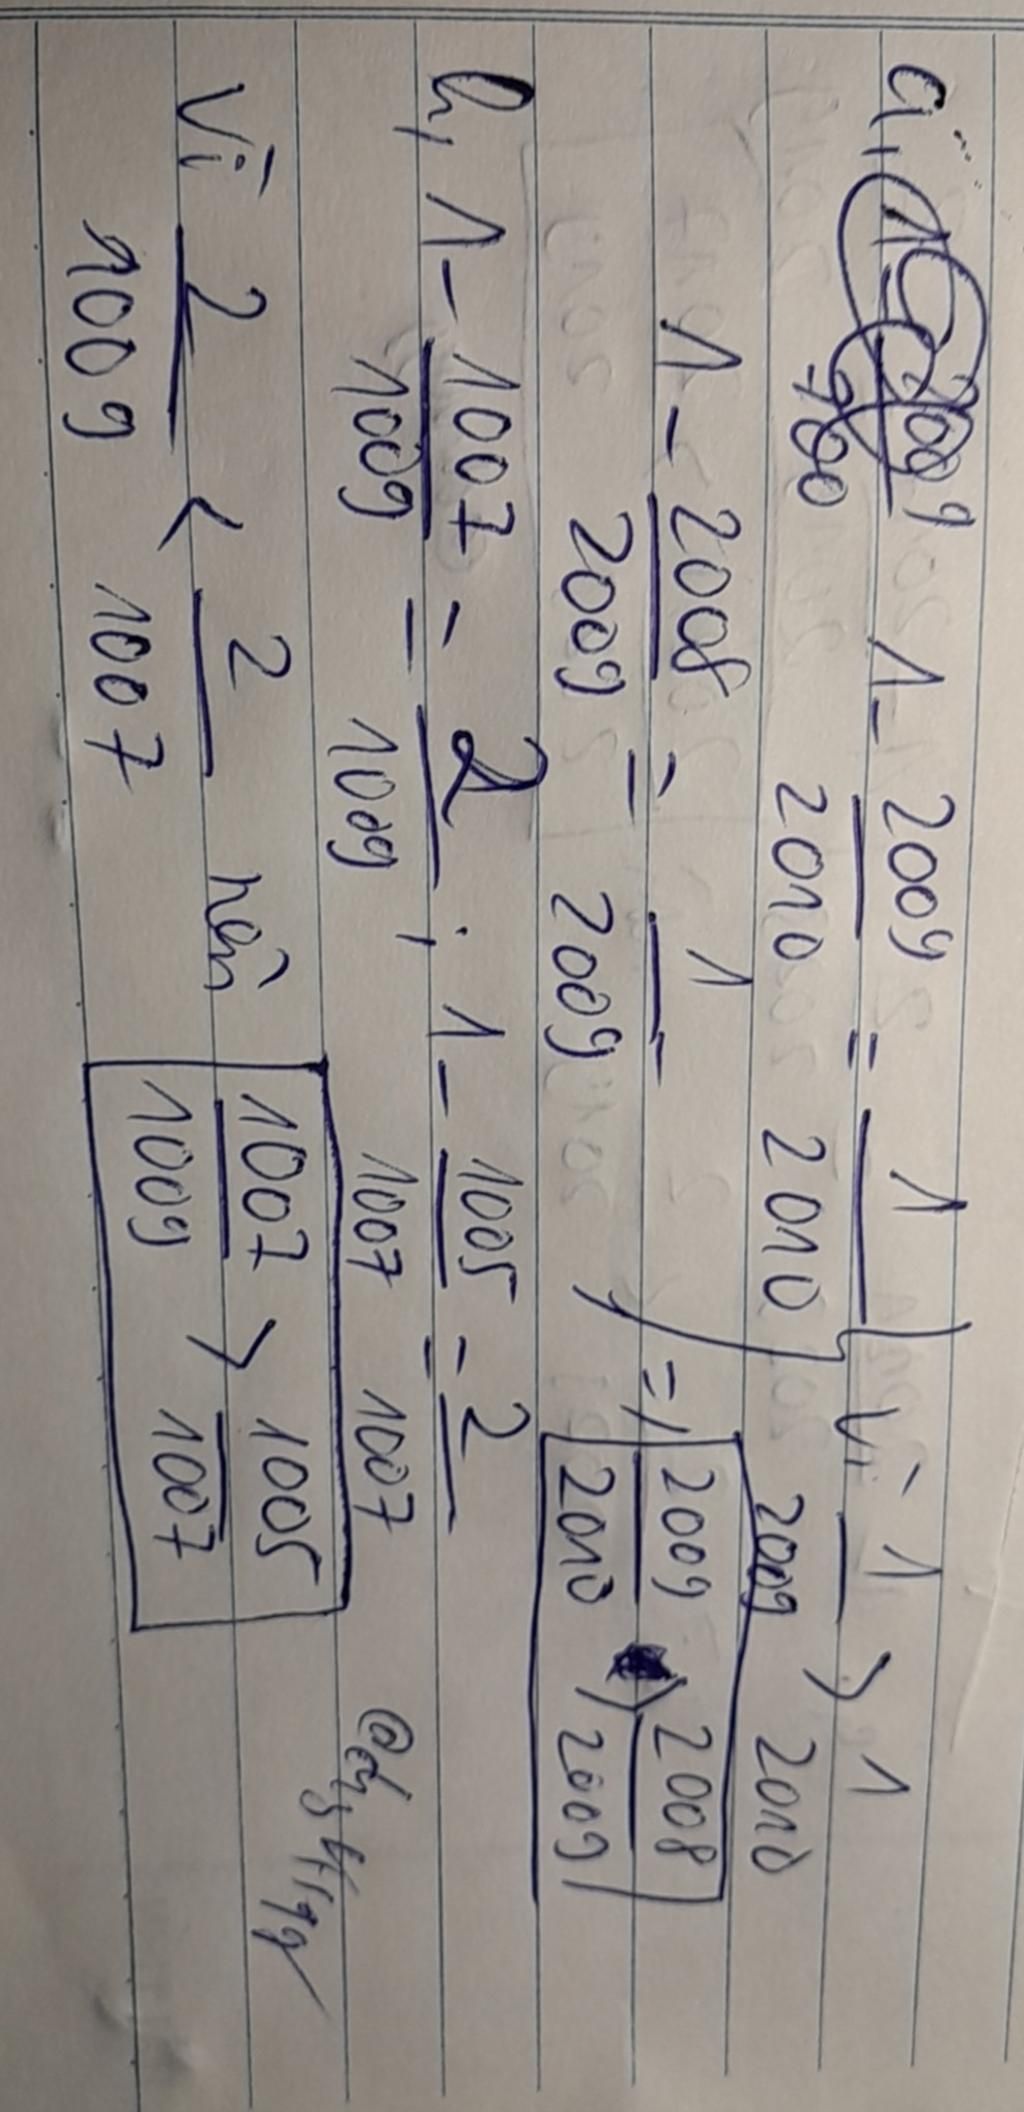 a, 1 - 2009/2010 = 1/2010
1 - 2008/2009 = 1/2009
Vì 1/2009 > 1/2010
=) 2009/2010 > 2008/2009
b, 1 - 1007/1009 = 2/1009 ; 1 - 1005/1007 = 2/1007
Vì 2/1009 < 2/1007 nên 1007/1009 > 1005/1007